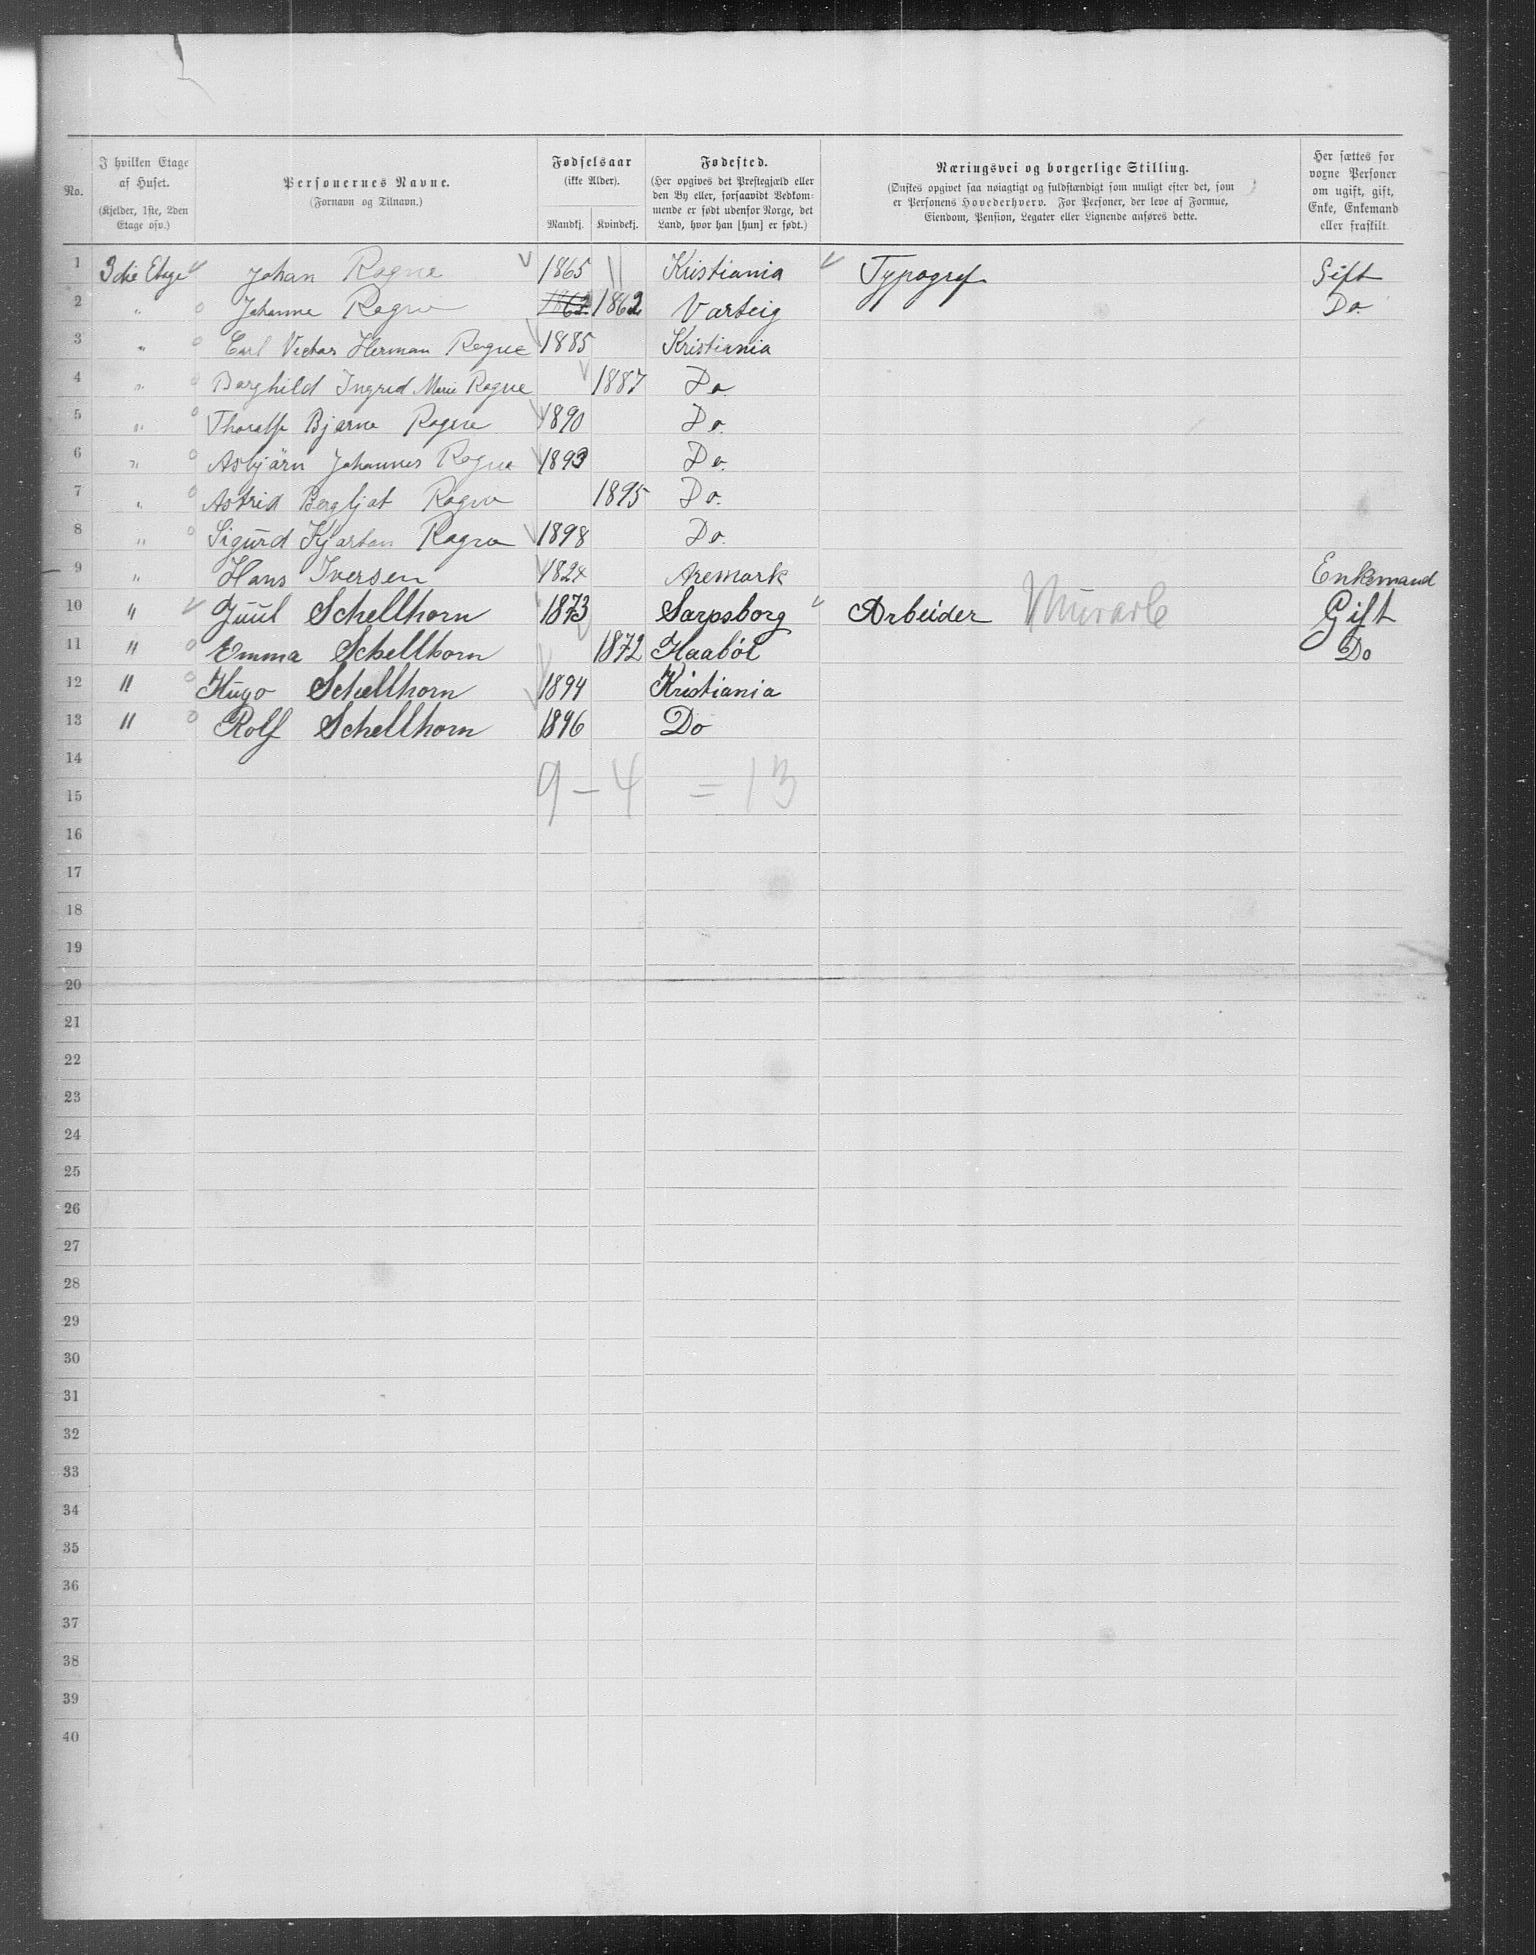 No.
I hvilken Etage af Huset. (Kjelder, 1ste, 2den Etage osv.)
Personernes Navne. (Fornavn og Tilnavn.)
Fødselsaar (ikke Alder). Mandkj. Kvindekj.
Fødested. (Her opgives det Prestegjæld eller den By eller, forsaavidt Vedkommende er født udenfor Norge, det Land, hvor han [hun] er født.)
Næringsvei og borgerlige Stilling. (Ønskes opgivet saa nøiagtigt og fuldstændigt som muligt efter det, som er Personens Hovederhverv. For Personer, der leve af Formue, Eiendom, Pension, Legater eller Lignende anføres dette.
Her sættes for voxne Personer om ugift, gift, Enke, Enkemand eller fraskilt.
1 3die Etage Johan Ragne 1865 Kristiania Typograf Gift
2 " Johanne Ragne 1862 1862 Varteig Do.
3 " Carl Victor Herman Ragne 1885 Kristiania
4 " Borghild Ingrid Marie Ragne 1887 Do.
5 " Thoralf Bjarne Ragne 1890 Do.
6 " Asbjørn Johannes Ragne 1893 Do.
7 " Astrid Bergljot Ragne 1895 Do.
8 " Sigurd Kjartan Ragne 1898 Do.
9 " Hans Iversen 1824 Aremark Enkemand
10 " Juul Schellhorn 1873 Sarpsborg Arbeider Murarb Gift
11 " Emma Schellhorn 1872 Haabøl Do
12 " Hugo Schellhorn 1894 Kristiania
13 " Rolf Schellhorn 1896 Do
14
9 – 4 = 13
15
16
17
18
19
20
21
22
23
24
25
26
27
28
29
30
31
32
33
34
35
36
37
38
39
40